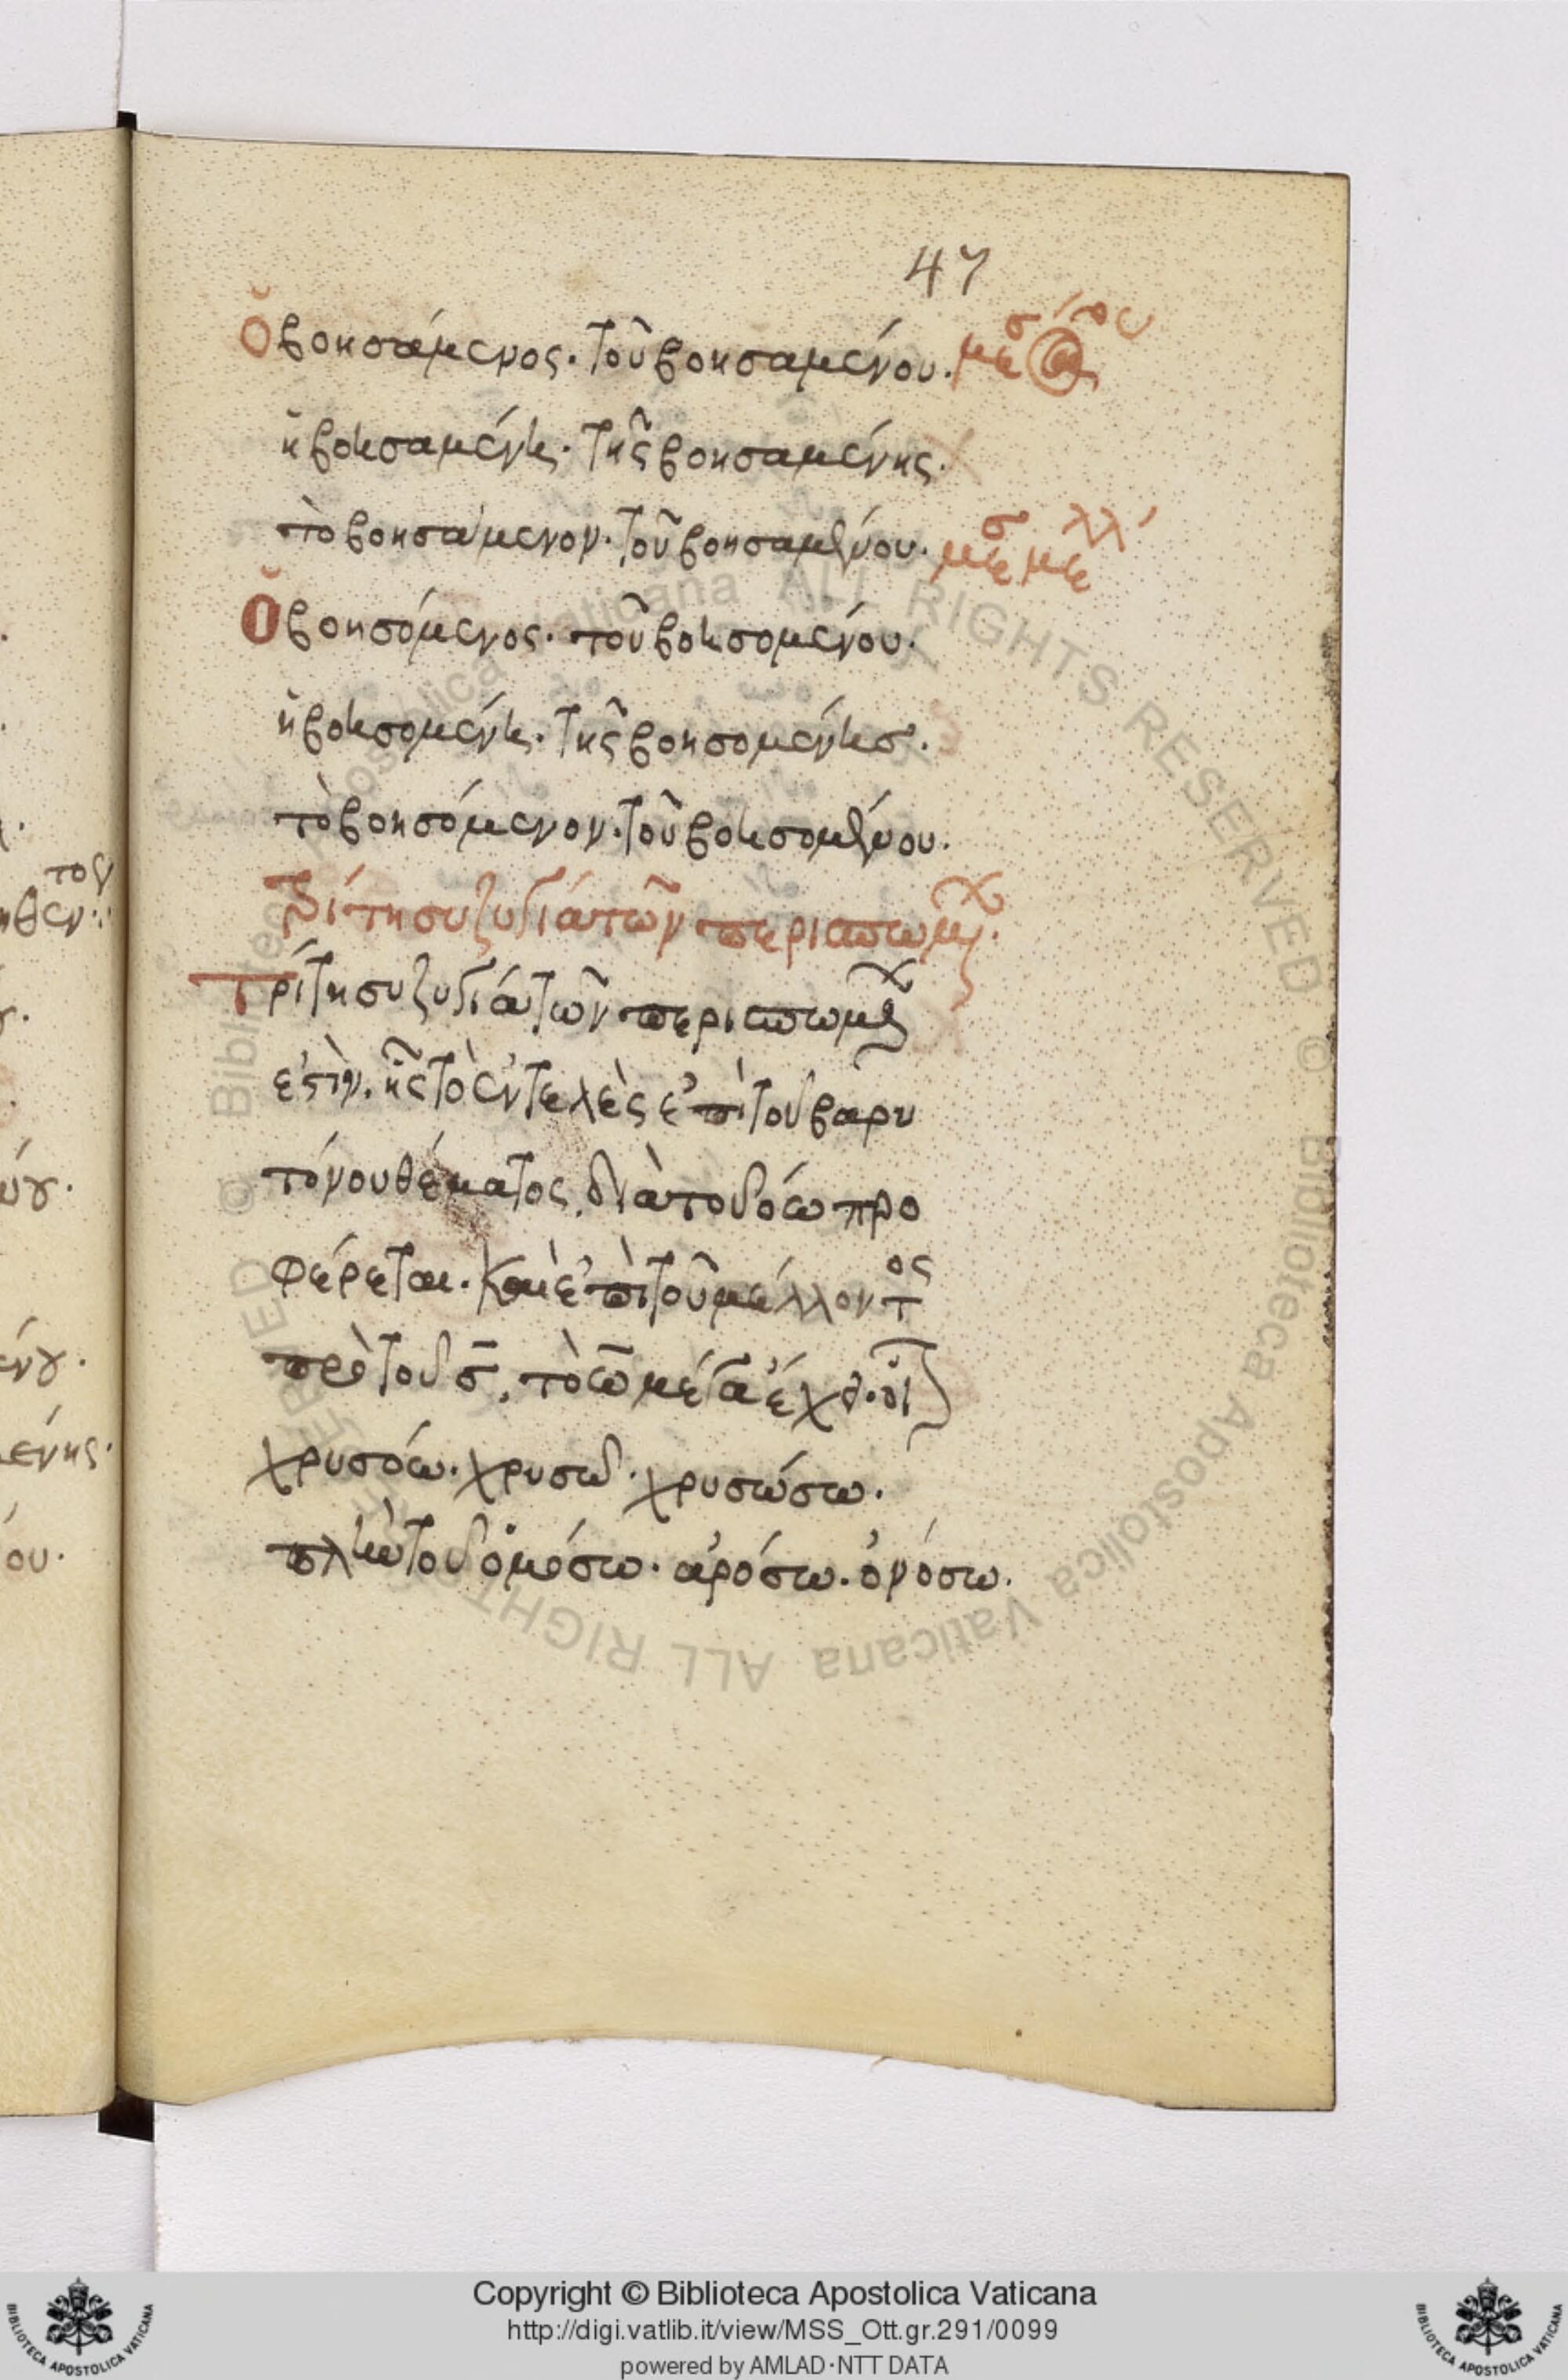 47
Ὁ βοησάμενος· τοῦ βοησαμένου· μεσ
ἡ βοησαμένη· τῆς βοησαμένης·
τὸ βοησάμενον· τοῦ βοησαμένου· μεσ μελλ
Ὁ βοησόμενος· τοῦ βοησομένου·
ἡ βοησομένη· τῆς βοησομένησ·
τὸ βοησόμενον· τοῦ βοησομένου·
τρίτη συζυγία τῶν περισπωμ·
Τρίτη συζυγία τῶν περισπωμ
ἐστὶν· ἧς τὸ ἐντελὲς ἐπὶ τοῦ βαρυ
τόνου θέματος, διὰ τοῦ όω προ
φέρεται· καὶ ἐπὶ τοῦ μέλλοντος
πρὸ τοῦ σ, τὸ ω μέγα ἔχει· οἷ
χρυσόω· χρυσῶ· χρυσώσω·
πλὴν τοῦ ὀμόσω· ἀρόσω· ὀνόσω·
τον
ηθεν
ένης·
ου·
Copyright © Biblioteca Apostolica Vaticana
http://digi.vatlib.it/view/MSS_Ott.gr.291/0099
powered by AMLAD·NTT DATA